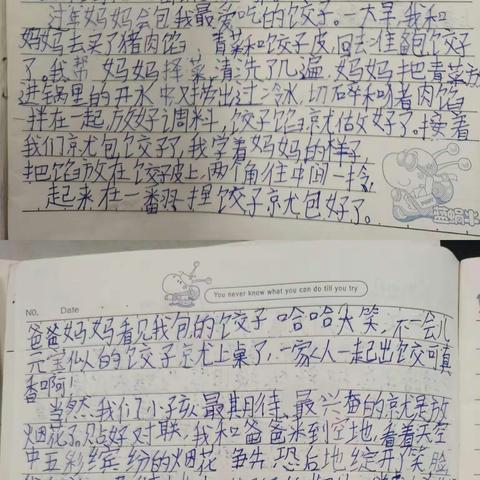 过年妈妈会包我最爱吃的饺子。一大早,我和
妈妈去买了猪肉馅,青菜和饺子皮,回去准备包饺子
了。我帮妈妈择菜,清洗了几遍,妈妈把青菜放
进锅里的开水中对捞出过冷水,切碎和猪肉馅
拌在一起,放好调料,饺子馅就做好了。接着
我们就包饺子了,我学着妈妈的样子
把馅放在饺子皮上,两个角往中间一捻,
起来在一翻,捏饺子就包好了。
蓝蜗牛
You never know what you can do till you try
No.
Date
爸爸妈妈看见我包的饺子哈哈大笑,不一会儿
元宝似的饺子就上桌了,一家人一起吃饺可真
香啊!
当然我们小孩最期待、最兴奋的就是放
烟花了。贴好对联,我和爸爸来到空地,看着天空
中五彩缤纷的烟花争先恐后地绽开了笑脸